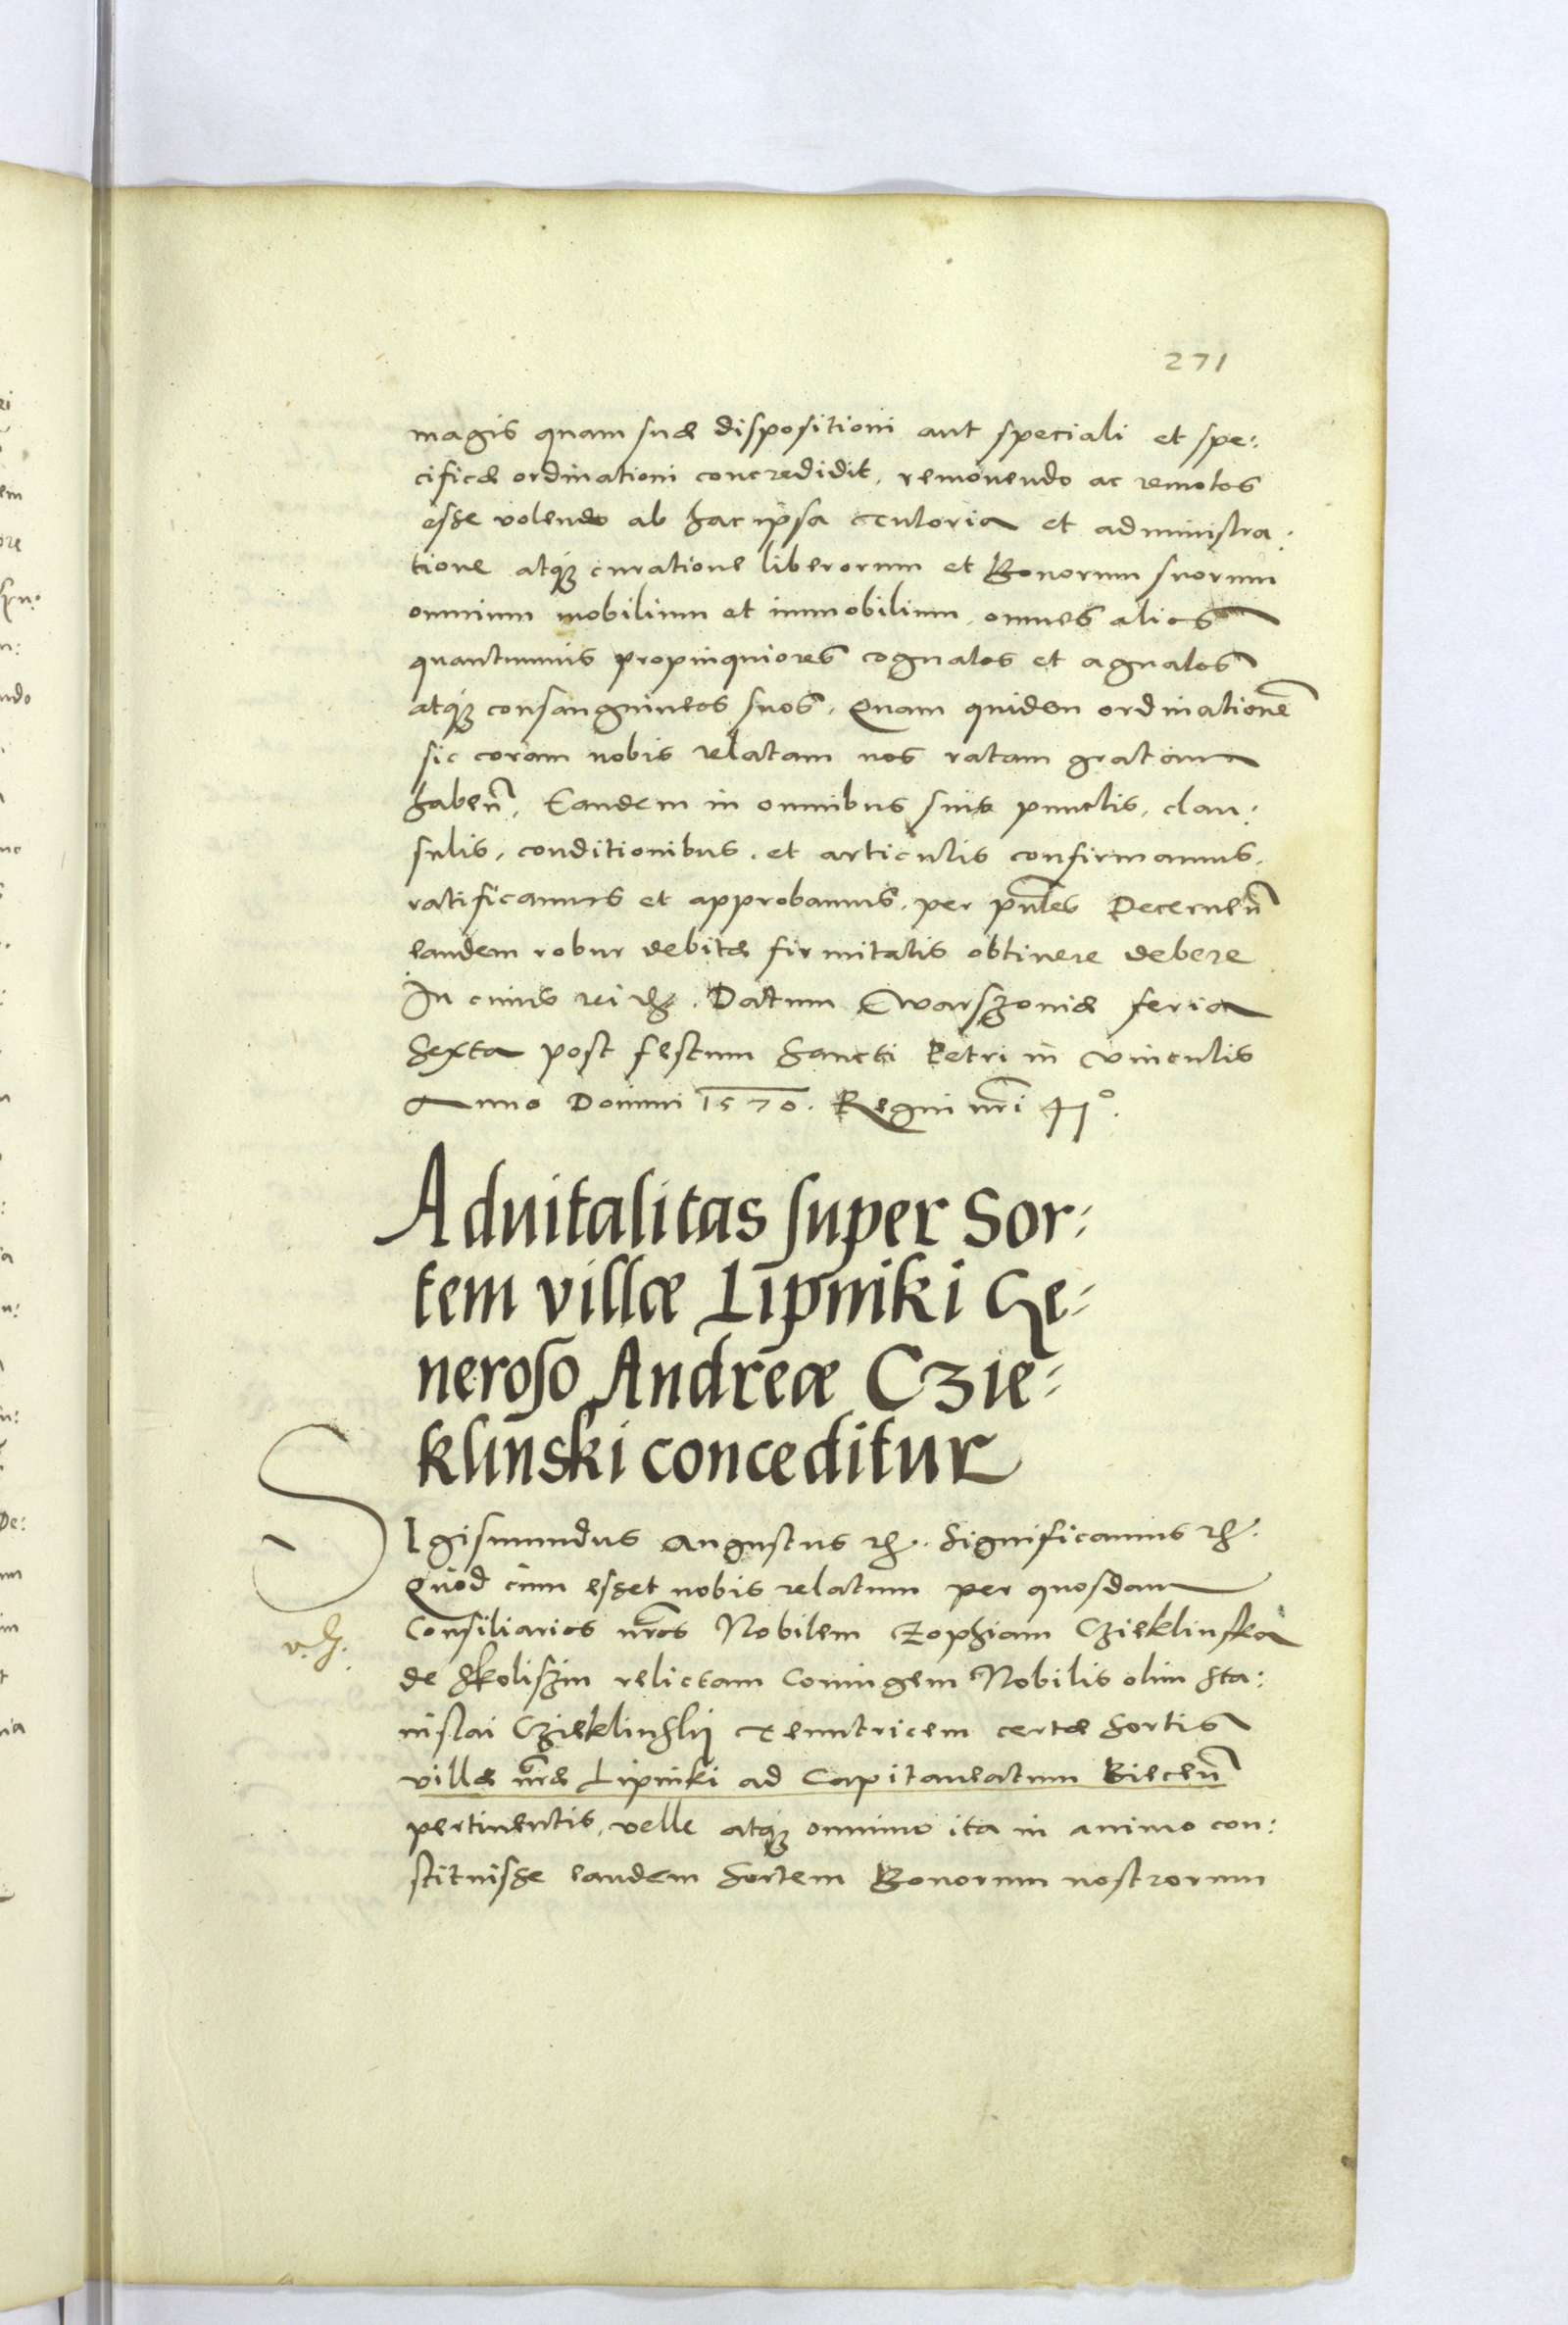 271
magis quam suæ dispositioni aut speciali et spe:
cificæ ordinationi concredidit, removendo ac remotos
esse volendo ab hac ipsa tutoria et administra:
tione atq₃ curatione liberorum et Bonorum suorum
omnium mobilium et immobilium, omnes alios
quantumvis propinquiores cognatos et agnatos
atq₃ consanguineos suos. Quam quidem ordinationē
sic coram nobis relatam nos ratam gratam
habeñ. Eandem in omnibus suis punctis, clau:
sulis, conditionibus, et articulis confirmamus,
ratificamus et approbamus, per pñtes Decerneñ
eandem robur debitæ firmitatis obtinere debere
In cuius rei &c. Datum Warszoviæ feria
Sexta post festum Sancti Petri in vinculis
Anno Domini 1570. Regni nr̃i 41°.
Advitalitas super Sor:
tem villæ Lipniki Ge:
neroso Andreæ Czie:
klinski conceditur
SIgismundus Augustus &c. Significamus &c.
Quod cum esset nobis relatum per quosdam
Consiliarios nr̃os Nobilem Zophiam Czieklinska
de Skoliszin relictam Coniugem Nobilis olim Sta:
nislai Czieklinskij tenutricem certæ Sortis
villæ nr̃æ Lipniki ad Capitaneatum Bieceñ
pertinentis, velle atq₃ omnino ita in animo con:
stituisse eandem Sortem Bonorum nostrorum